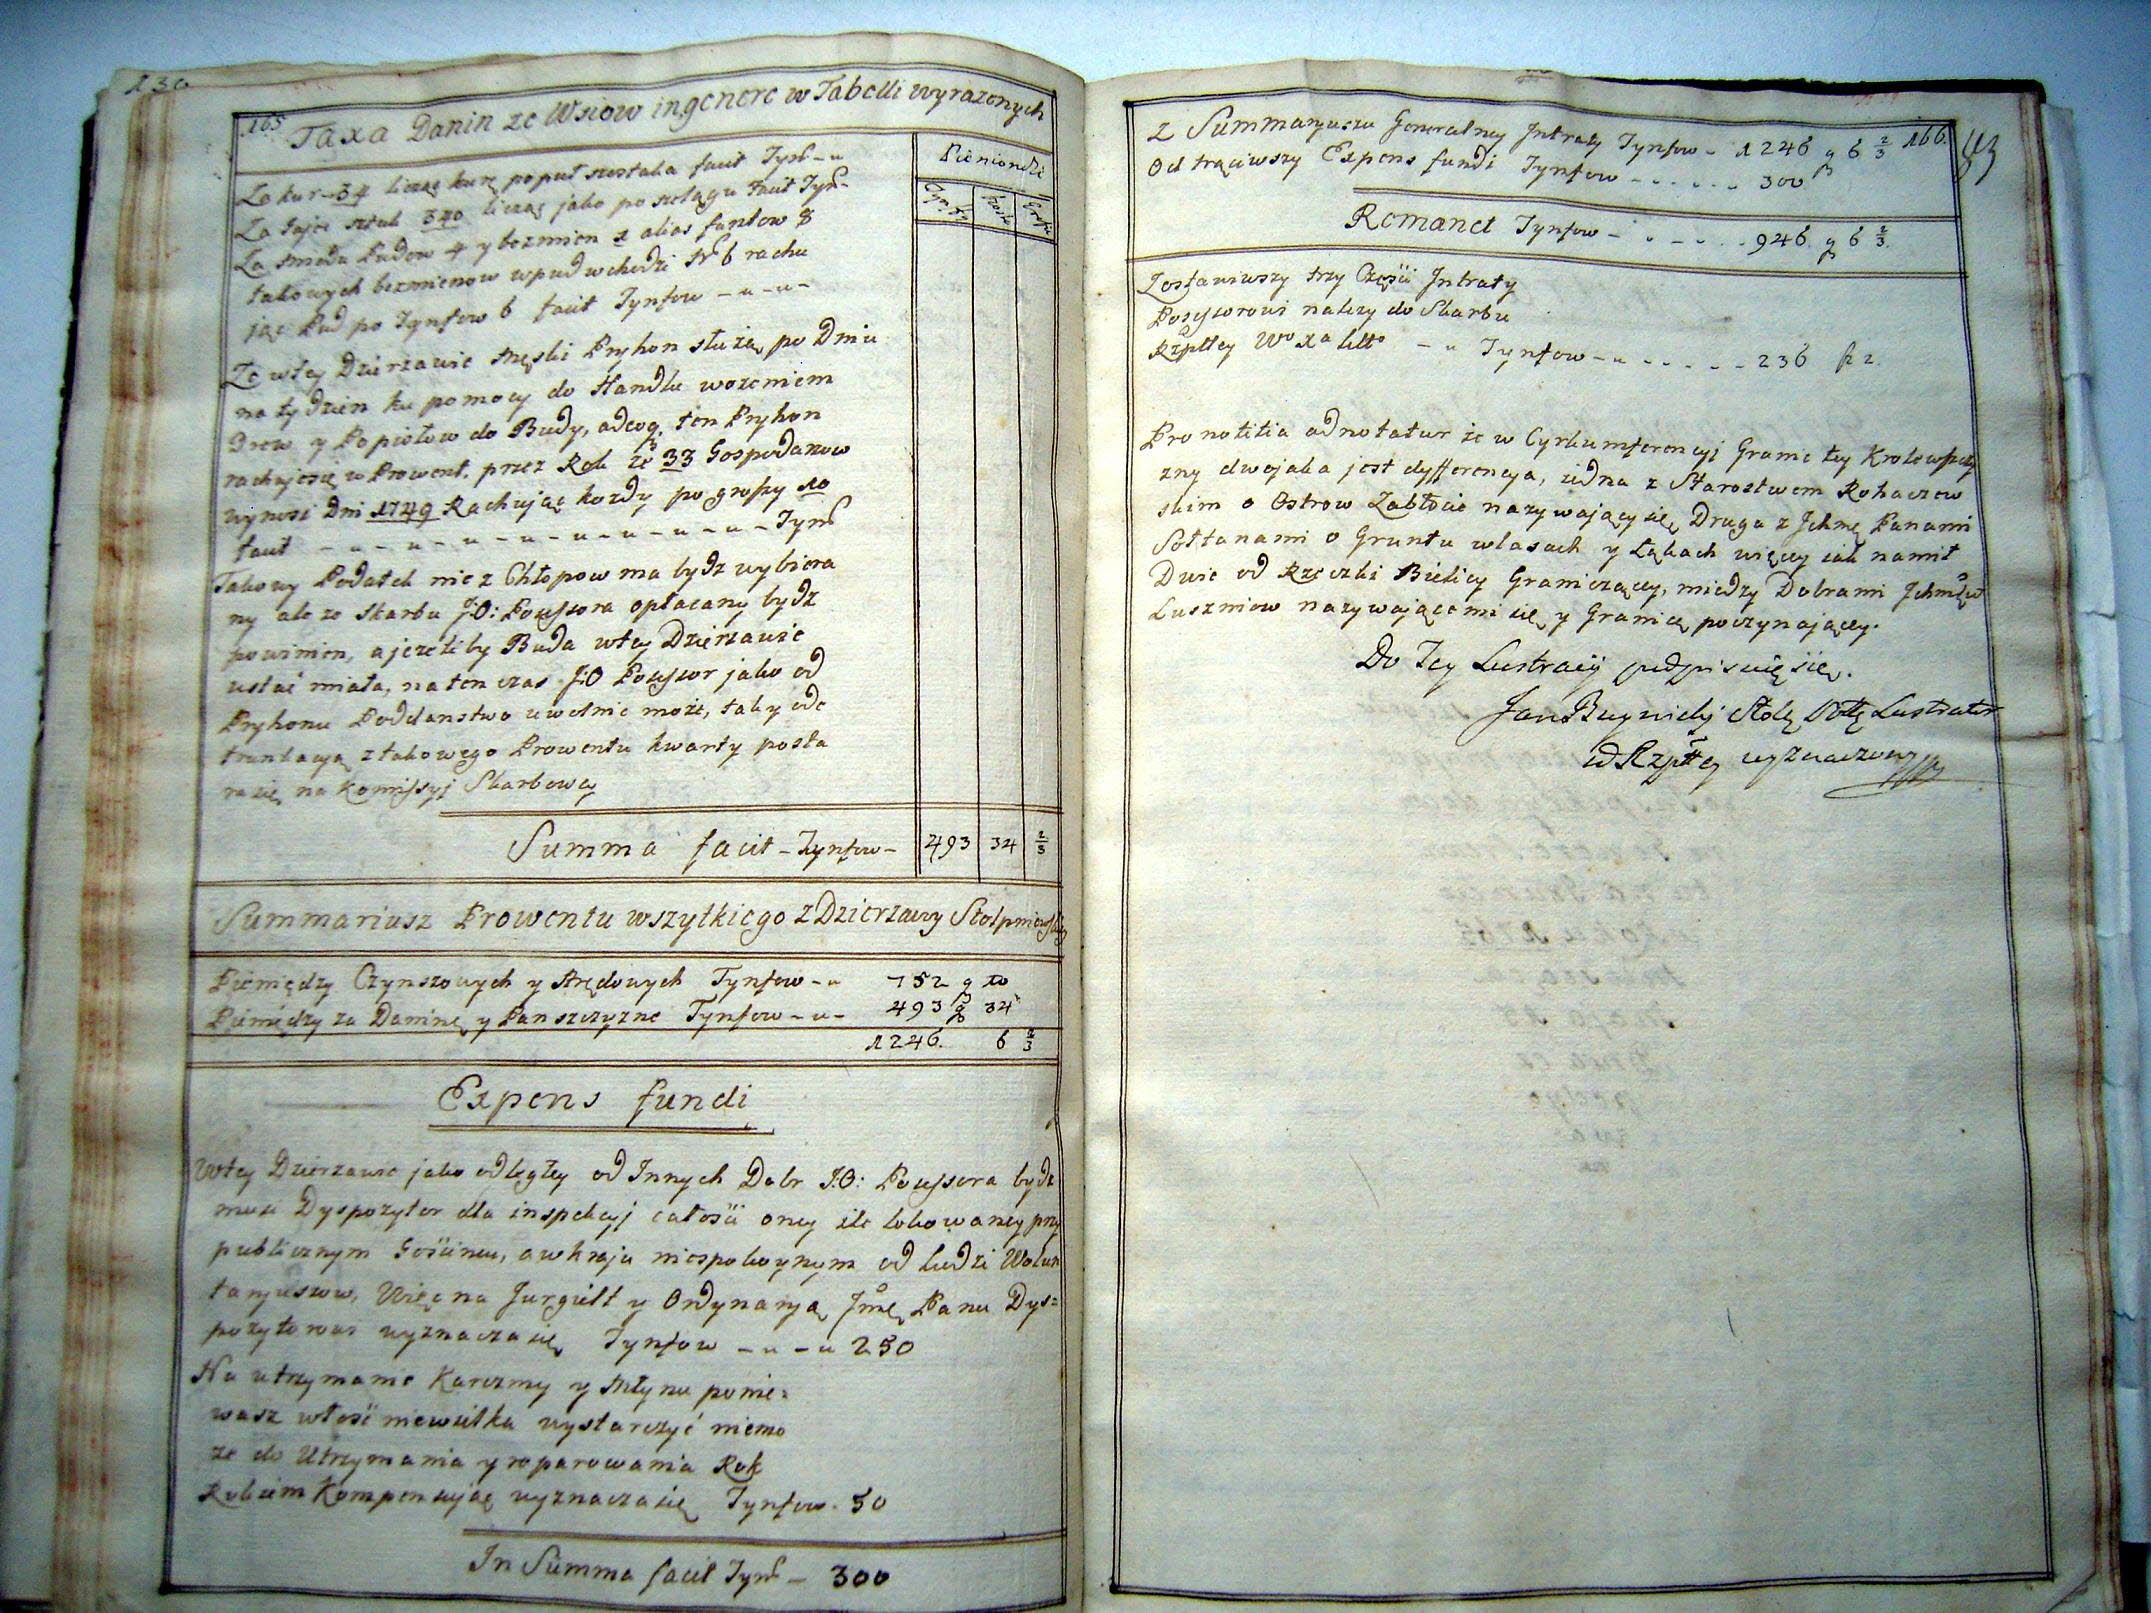 130
165 Taxa Danin ze Wsiow in genere w Tabelli wyrazonych
Pieniondze
Tynfy Groszy
Za kur - 34 licząc kurę po puł szostaka facit Tynf - u
Za Jajec sztuk 340 licząc jako po szelągu facit Tynf -
Za smoła Pudow 4 y bezmien 1 alias funtow 8
takowych bezmienow w pud wchodzi Nro 6 rachu
jąc Pud po Tynfow 6 facit Tynfow - u - u -
Ze w tey Dzierzawie męski Pryhon służą po Dniu
na tydzien ku pomocy do Handlu wozeniem
Drew y Popiołow do Budy, adeoq. ten Pryhon
rachujesię w Prowent. przez Rok ze 33 Gospodarzow
wynosi Dni 1749 Rachując kozdy po groszy 10
facit - u - u - u - u - u - u - u - Tynf
Takowy Podatek nie z Chłopow ma bydz wybiera
ny ale ze Skarbu J:O: Possessora opłacany bydz
powinien, a jezeliby Buda w tey Dzierzawie
ustać miała, na ten czas J:O Possessor jako od
Pryhonu Poddanstwo uwolnic może, tak y de
trunkacyą z takowego Prowentu kwarty posta
ra się na Komissyi Skarbowey
Summa facit - Tynfow - 493 34 2/3
Summariusz Prowentu wszytkiego z Dzierzawy Stołpniowskiey
Pieniędzy Czynszowych y Arędowych Tynfow - u 752 g 10
Pieniędzy za Daninę y Panszczyzne Tynfow - u - 493 g 34
1246. 6 2/3
Expens fundi
W tey Dzierzawie jako odległey od Innych Dobr J:O: Possessora bydz
musi Dyspozytor dla inspekcyi całości oney ile lokowaney przy
publicznym Gościncu, a w kraju niespokoynym od ludzi Wolun
taryuszow, Więc na Jurgielt y Ordynaryą Jmę Panu Dys=
pozytorowi wyznacza się Tynfow - u - u 250
Na utrzymanie Karczmy y Młynu ponie=
wasz włość niewielka wystarczyć niemo
ze do Utrzymania y reparowania Rok
Rokiem Kompensując wyznacza się Tynfow. 50
In Summa facit Tynf - 300
166.
Z Summaryusza Generalney Intraty Tynfow - 1246 g 6 2/3
Od trąciwszy Expens fundi Tynfow - - . . . 300
Romanet Tynfow - . . - . . 946. g 6 2/3.
Zostawiwszy trzy Części Intraty
Possessorowi nalezy do Skarbu
Rzpltey - u Tynfow - u - . . . - 236
Pro notitia adnotatur że w Cyrkumferencyi Granic tey Krolewszczy
zny dwojaka jest dyfferencya, iedna z Starostwem Rohaczew
skim o Ostrow Zabłocie nazywający się, Druga z Ichmę Panami
Sołtanami o Gruntu własach y Łąkach więcey iak na mil
Dwie od Rzeczki Bielicy Graniczącey, miedzy Dobrami Ichmęw
Luszniow nazywającemi się y Granicę poczynającey.
Do Tey Lustracij podpisuię się.
Jan Lustrator
od Rzpltey wyznaczony